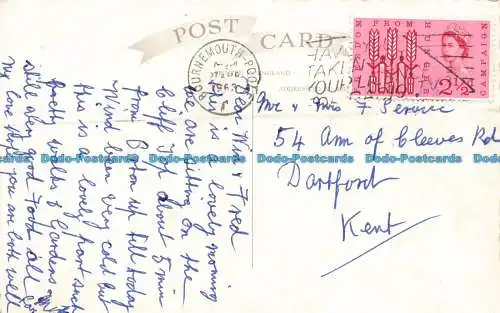 POST CARD
BOURNEMOUTH-POOLE
1963
HAVE
TAKEN
YOUR
FREEDOM FROM HUNGER
CAMPAIGN
2½
Dear Win & Fred
Here is a lovely morning
we are sitting on the
cliff Just about 5 min
from B ton up till today
Wind been very cold but
this is a lovely part such
pretty walks & Gardens
still very good Food all
My love hope you are both well
Mr & Mrs F Service
54 Ann of Cleeves Rd
Dartford
Kent
Dodo-Postcards Dodo-Postcards Dodo-Postcards Dodo-Postcards Dodo-Postcards